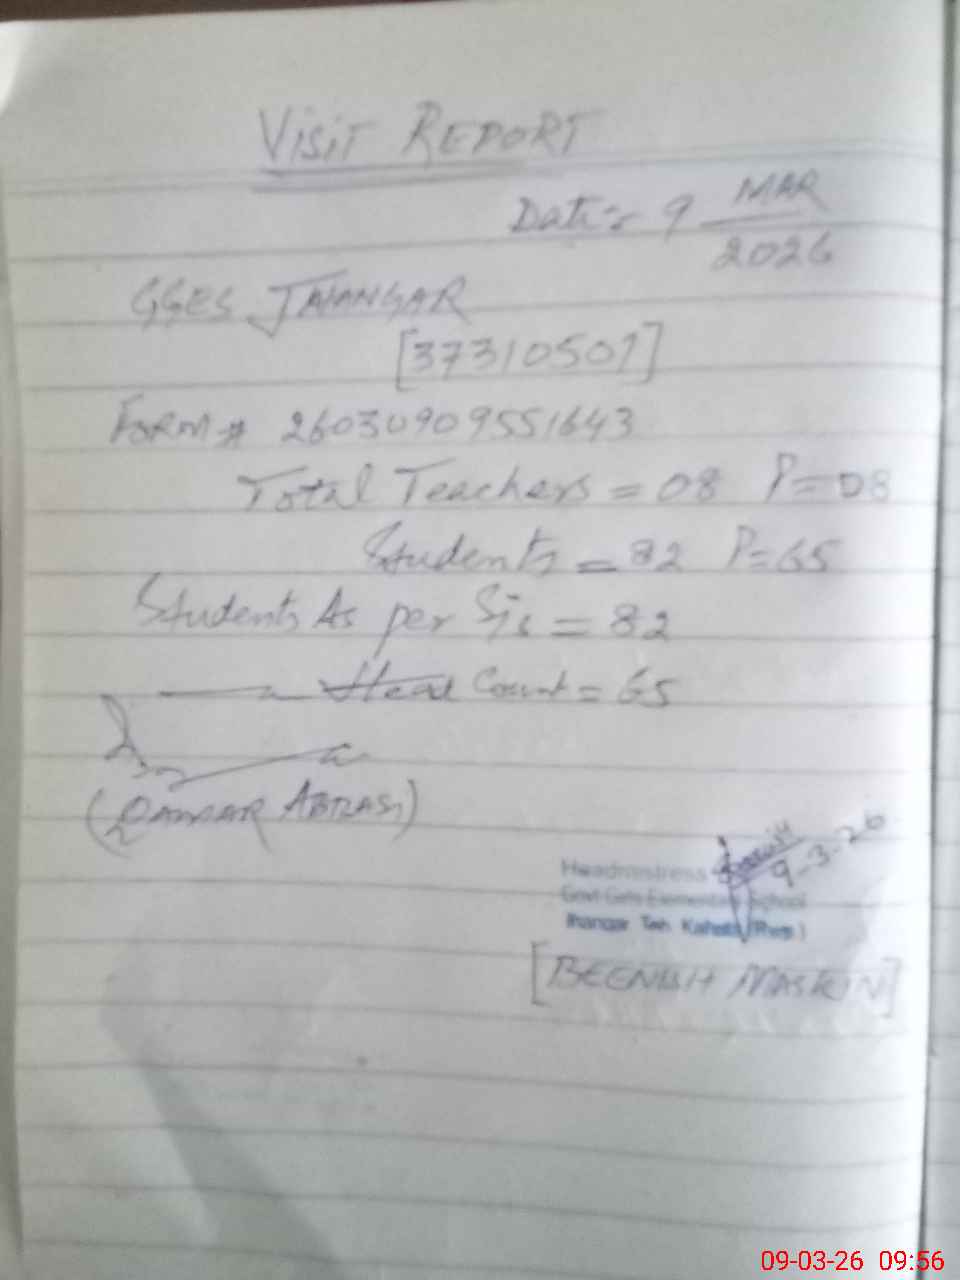 VISIT REPORT
Date:- 9 MAR
2026
GGES JAHANGAR
[37310507]
FORM # 26030909551643
Total Teachers = 08 P=08
Students = 82 P=65
Students As per Sis = 82
Head Count = 65
(QAMAR ABRAS)
9-3-26
Headmistress
Govt Girls Elementary School
Jhangar Teh Kahuta (Rwp)
[BEENISH MASKIN]
09-03-26 09:56